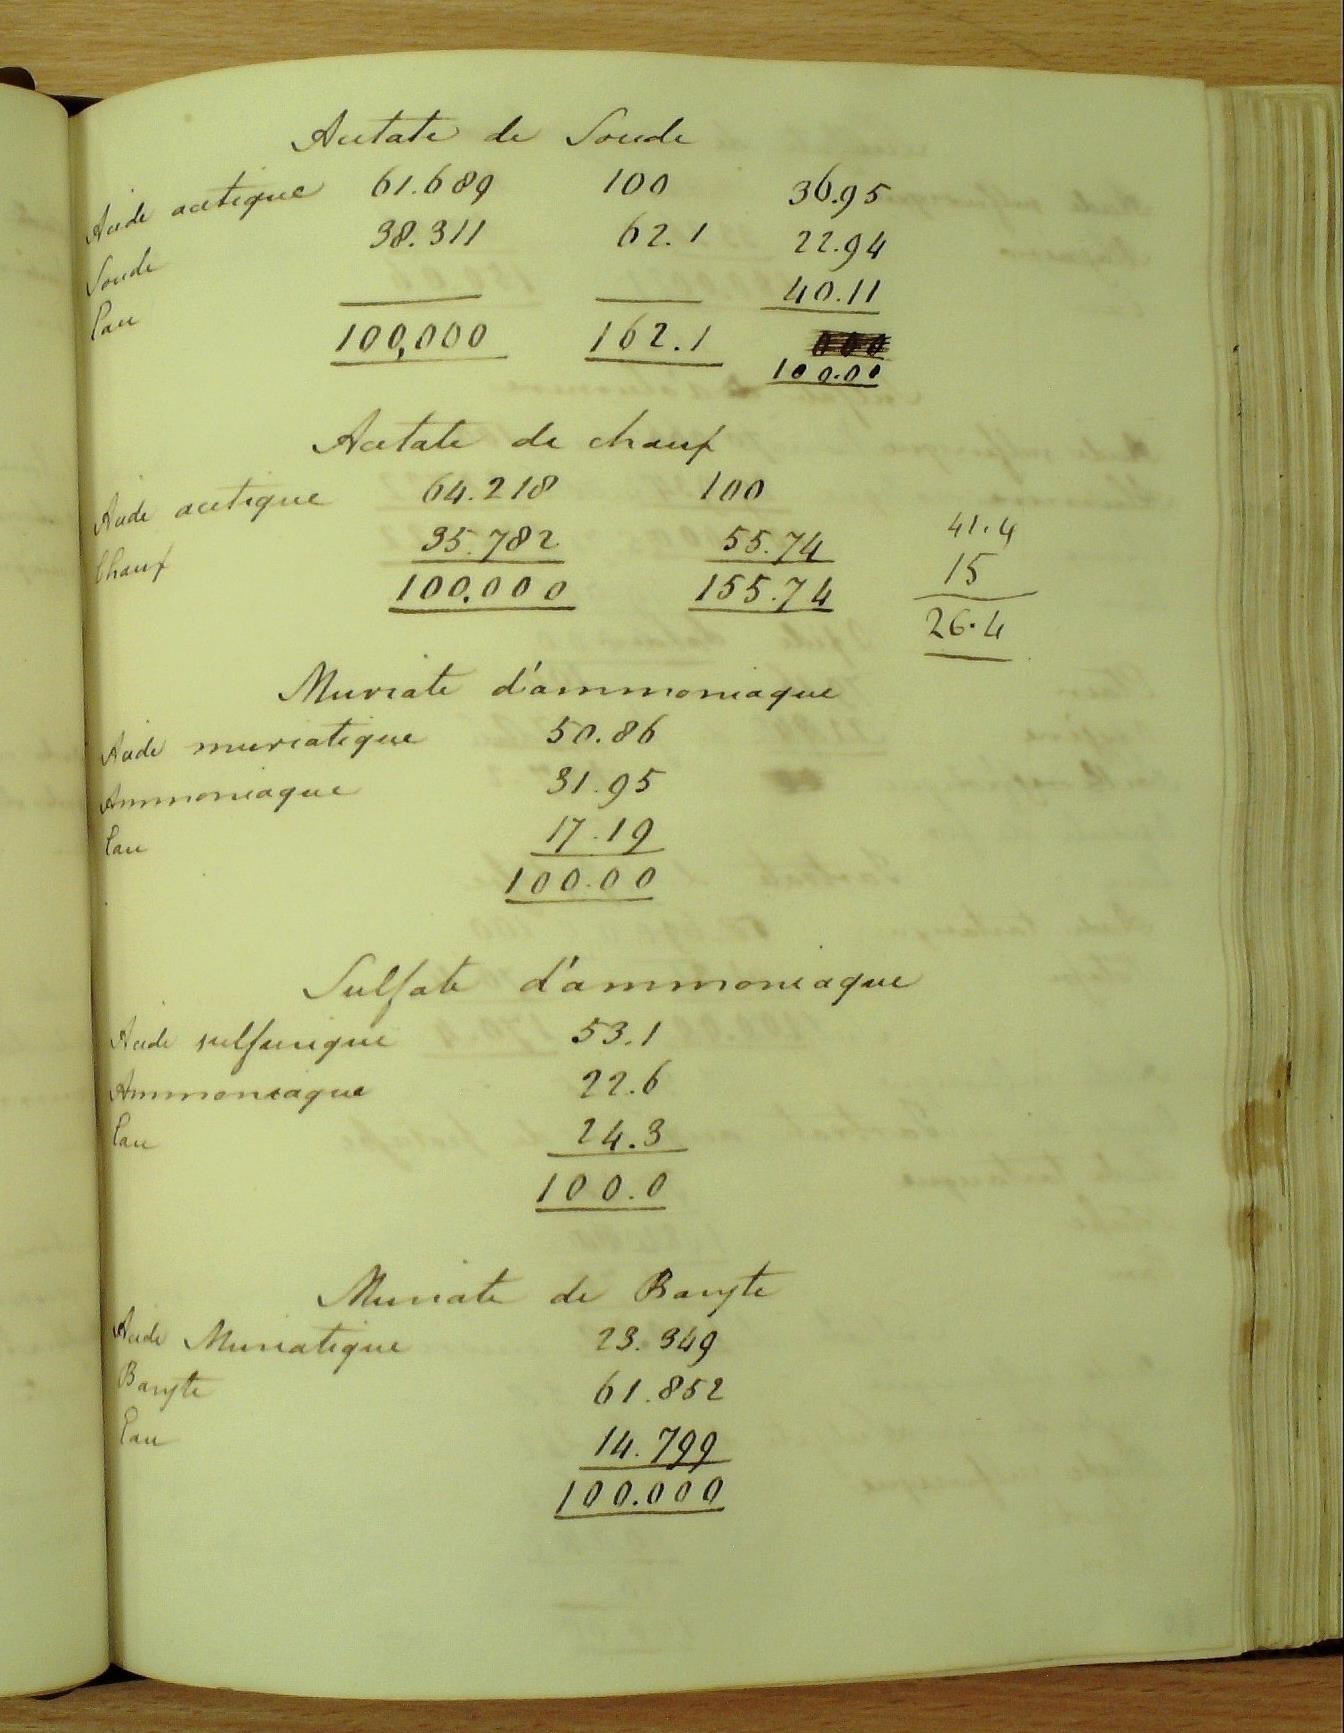 Acetate de Soude
Acide acetique 61.689 100 36.95
Soude 38.311 62.1 22.94
Eau 40.11
100,000 162.1 000
100.00
Acetate de chaux
Acide acetique 64.218 100
Chaux 35.782 55.74
100.000 155.74
41.4
15
26.4
Muriate d'ammoniaque
Acide muriatique 50.86
Ammoniaque 31.95
Eau 17.19
100.00
Sulfate d'ammoniaque
Acide sulfurique 53.1
Ammoniaque 22.6
Eau 24.3
100.0
Muriate de Baryte
Acide Muriatique 23.349
Baryte 61.852
Eau 14.799
100.000